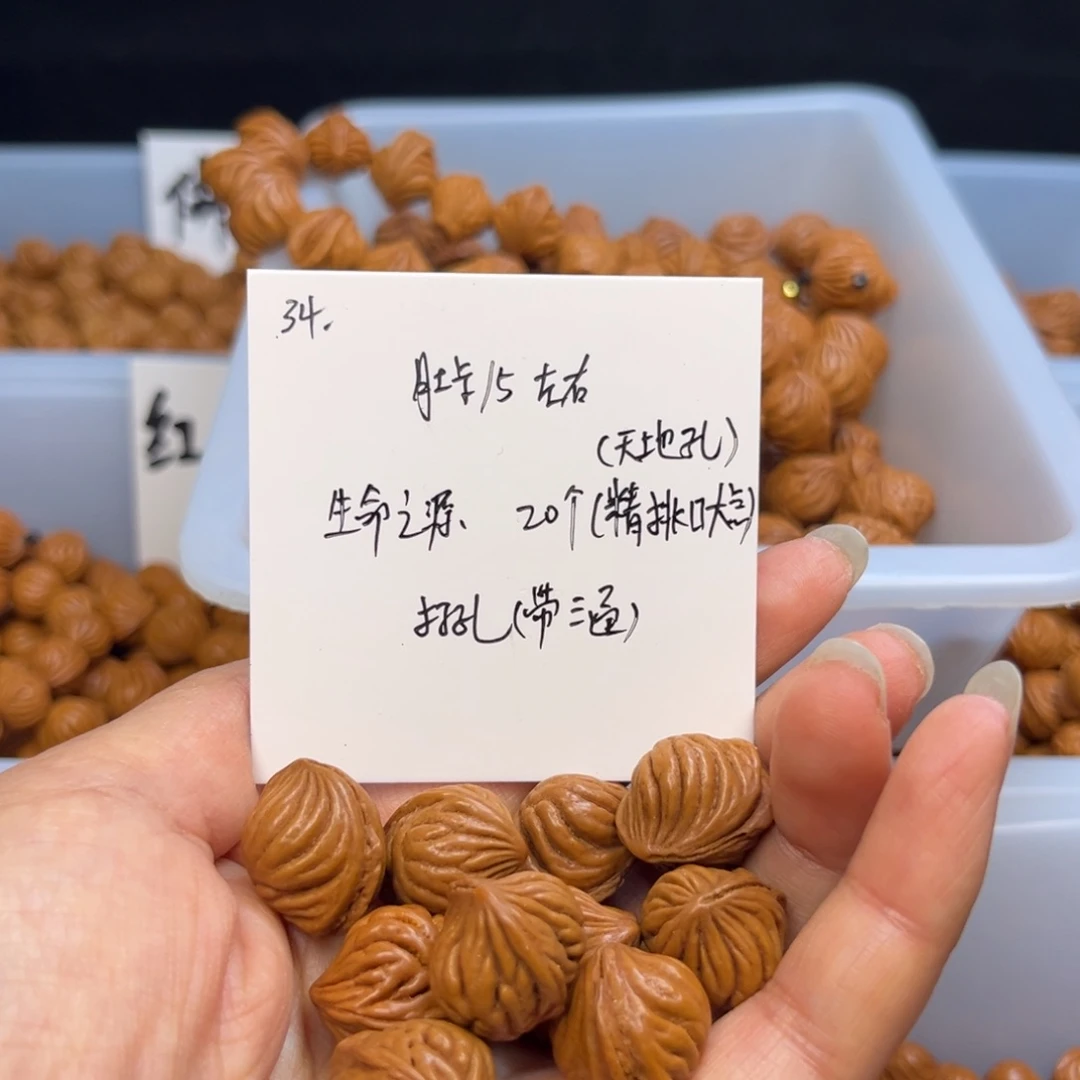 34.
肚卡15左右
(天地孔)
生命之源、 20个(精挑口大点)
打孔(带三通)
佛
红